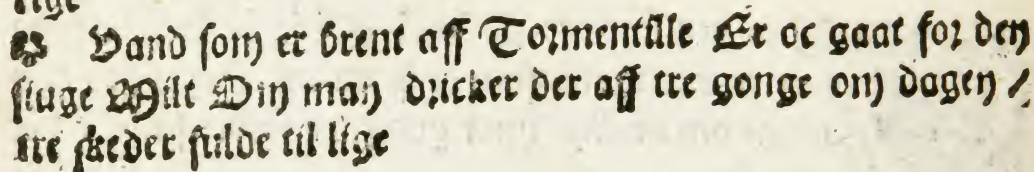 lige
Vand som er brent aff Tormentille Er oc gaat for den
siuge Milt Om man dricker der aff tre gonge om dagen /
tre skeder fulde til lige